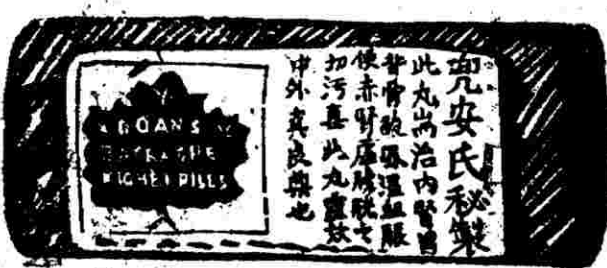 兜安氏秘製
此丸耑治内腎
背骨酸溼血
便赤腎虛膀胱
切污毒此丸靈
中外真良藥也
DOANS
BACKACHE
KIDNEY PILLS